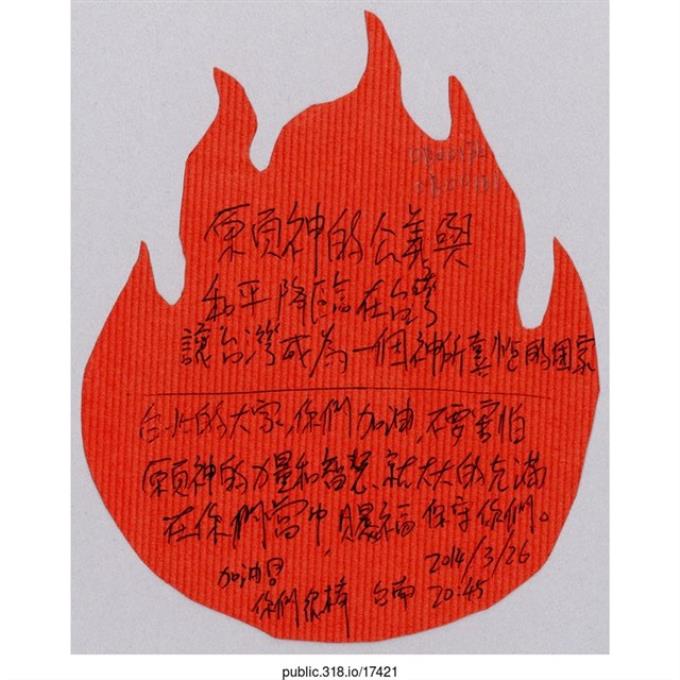 願神的公義與
和平降臨在台灣
讓台灣成為一個神所喜悅的國家
台北的大家,你們加油,不要害怕
願神的力量和智慧、就大大的充滿
在你們當中,賜福保守你們。
加油!
你們很棒
台南
2014/3/26
20:45
public.318.io/17421